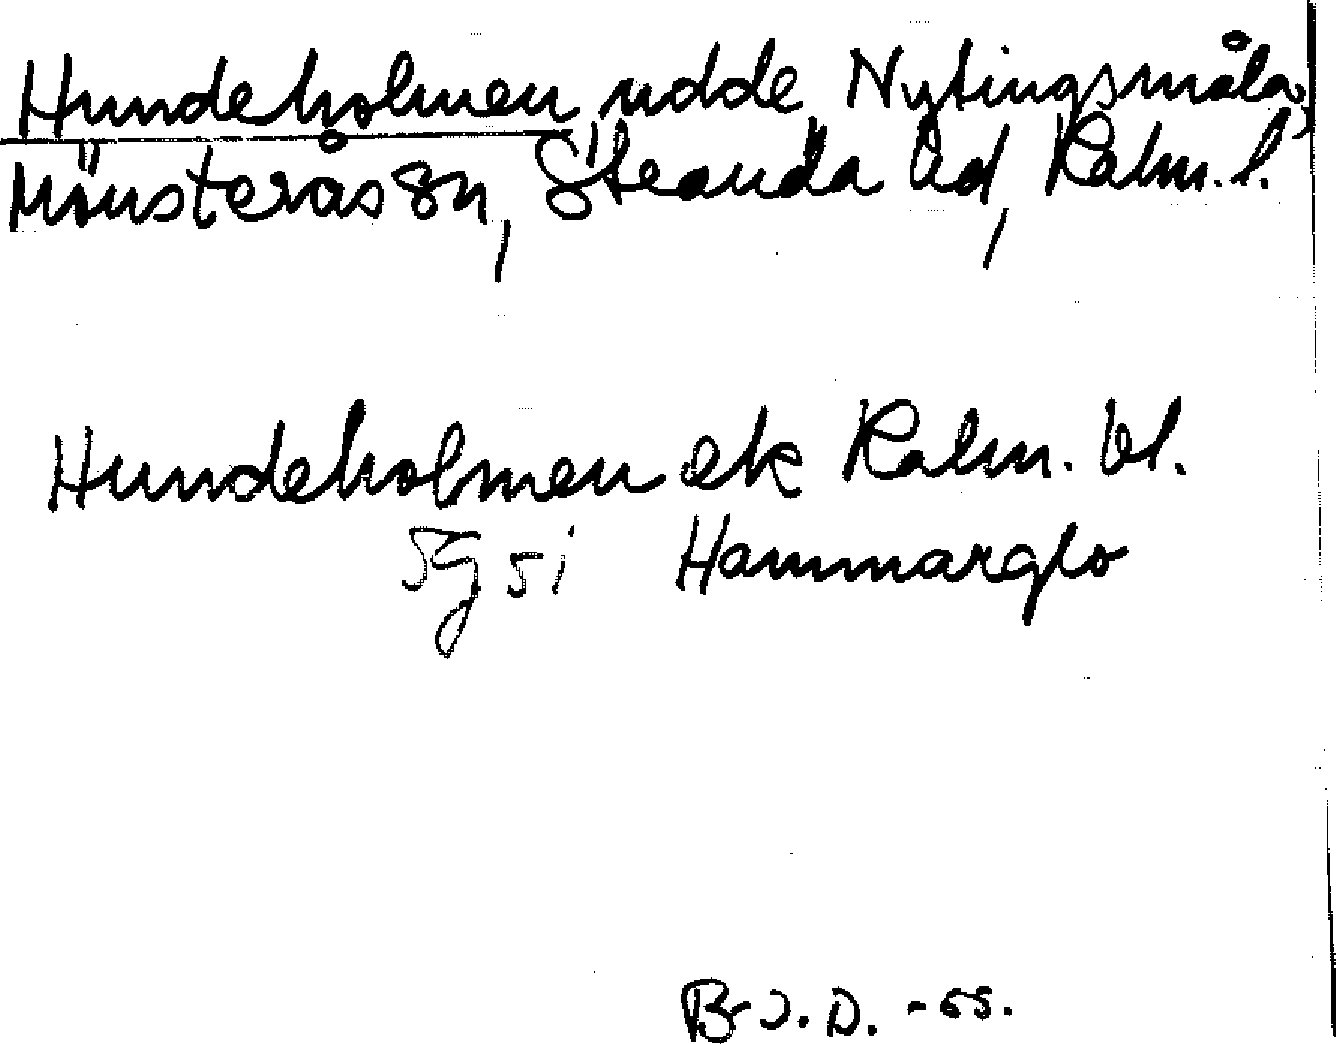 Hundeholmen, udde, Nytingsmåla,
Mönsterås sn, Stranda hd, Kalm. l.
Hundeholmen ek Kalm. bl.
5g 5i Hammarglo
B-J. D. -55.